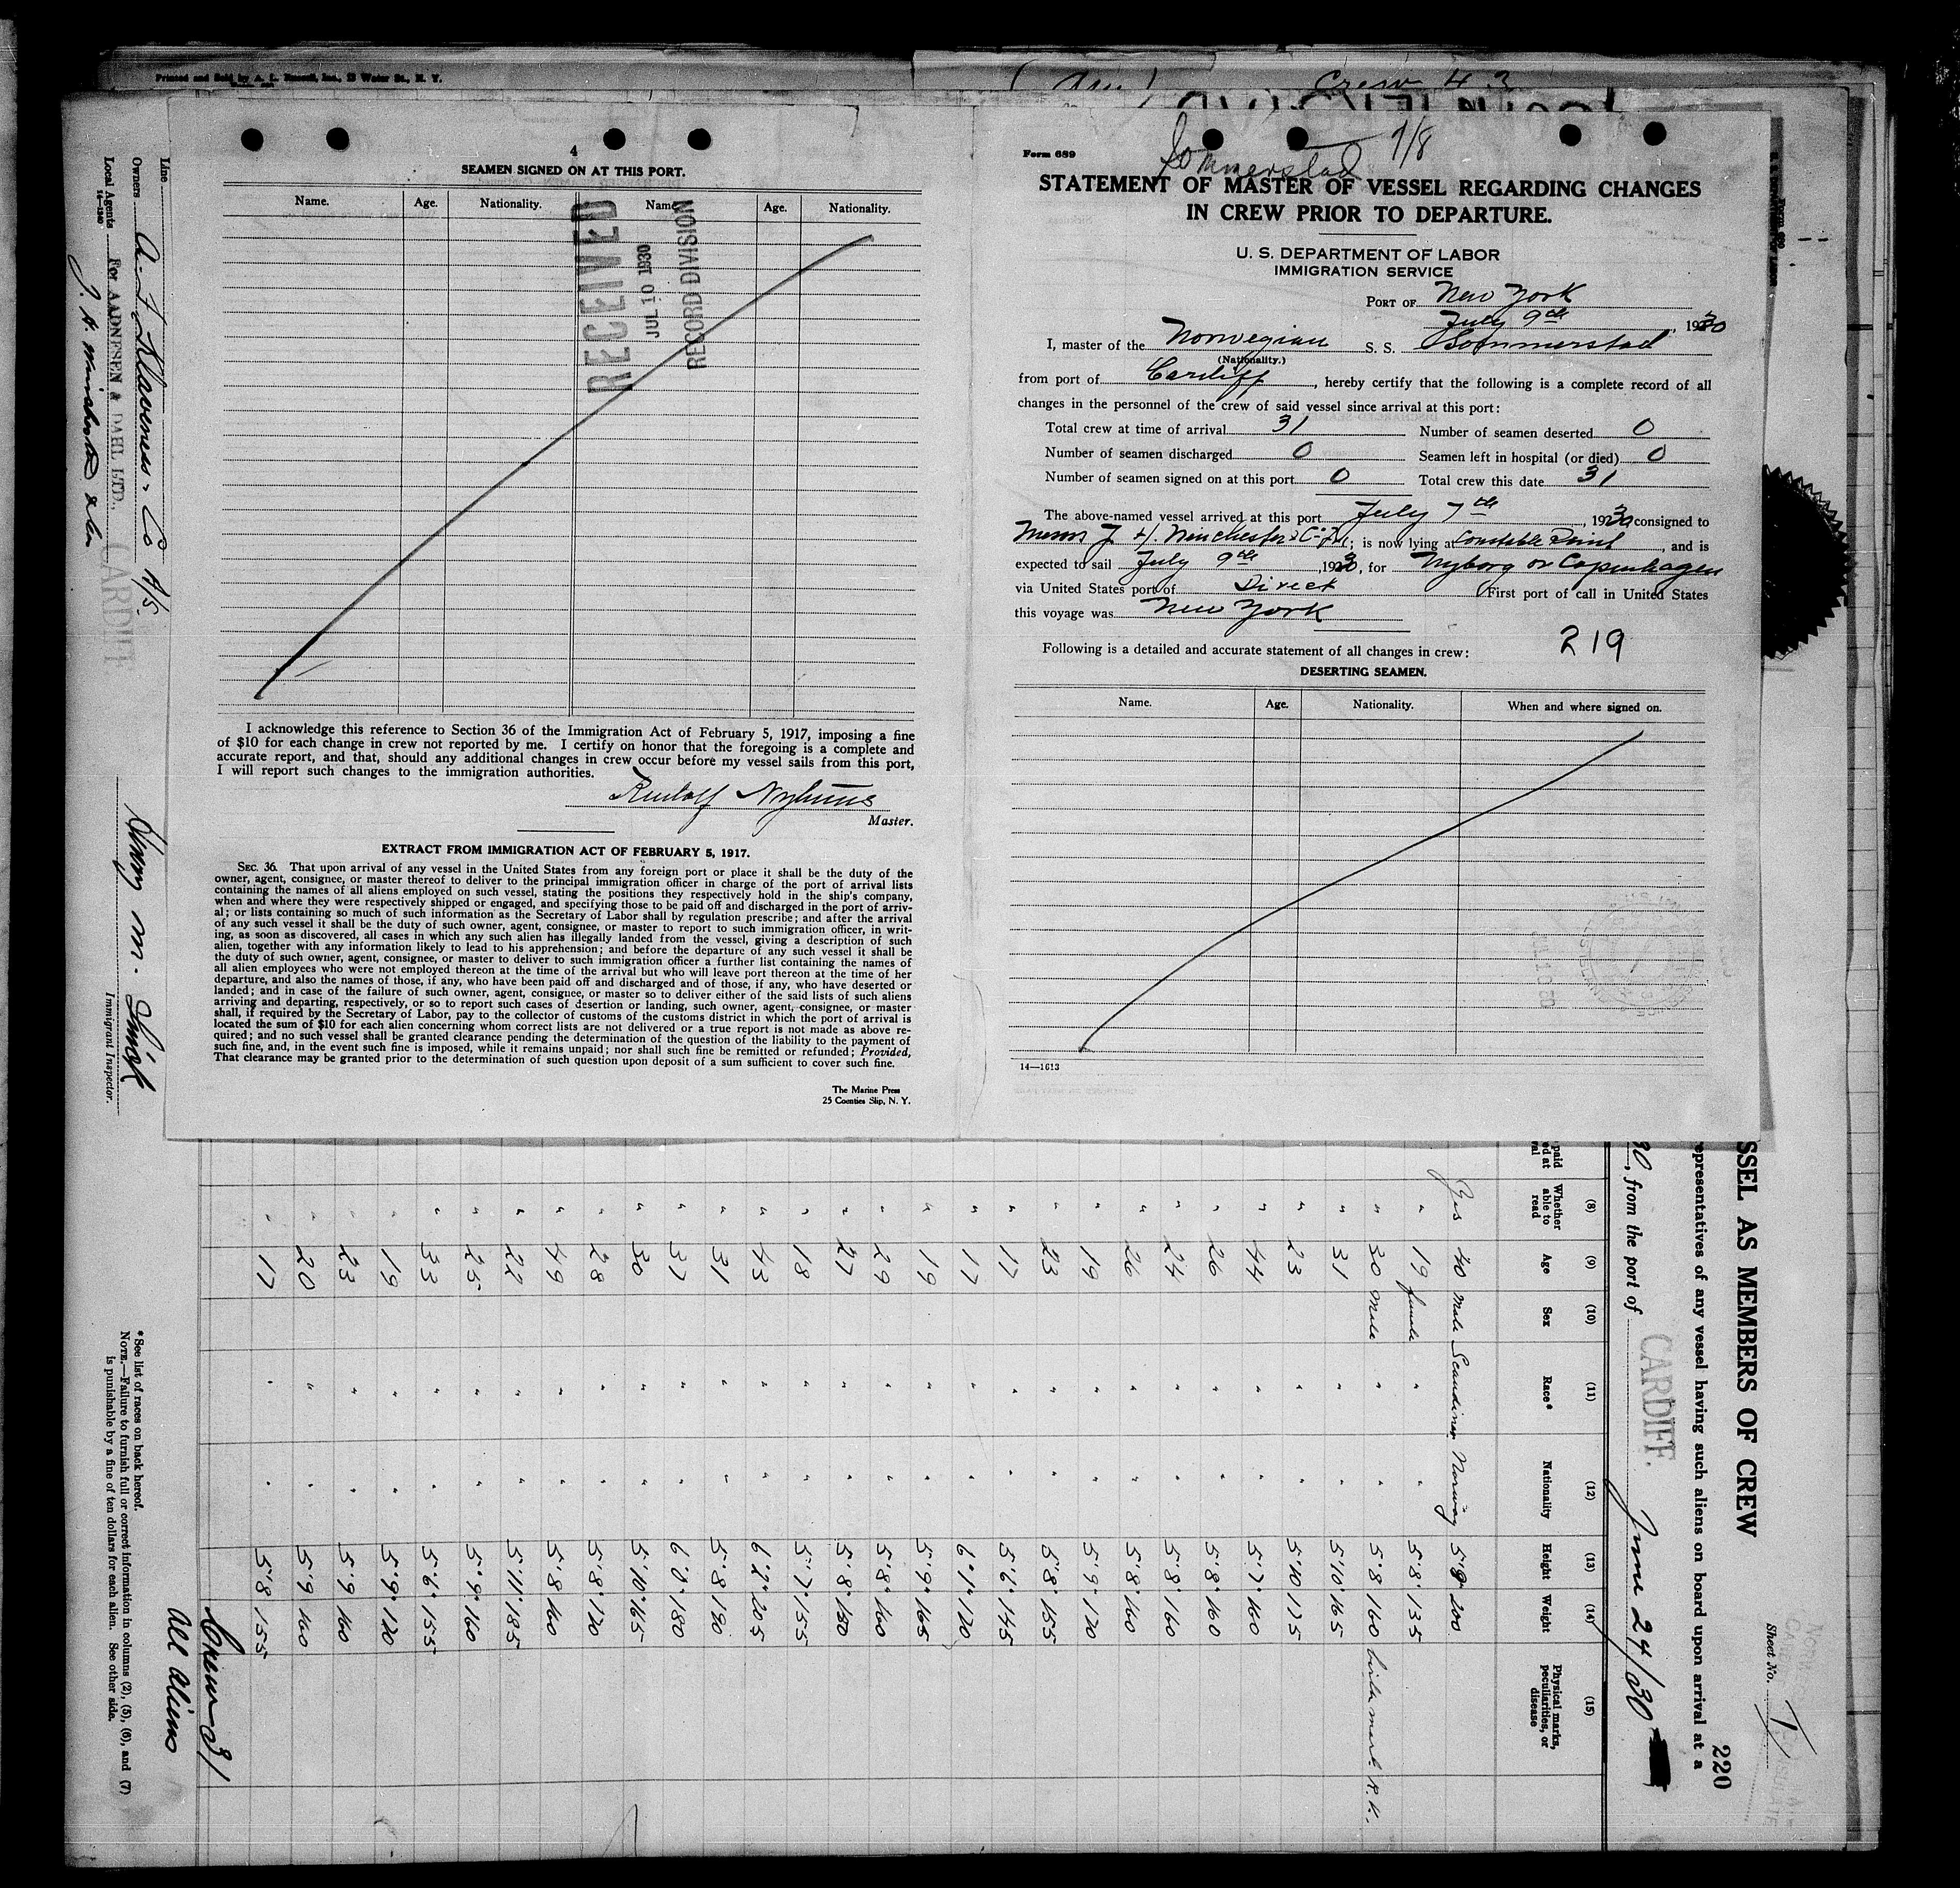 Printed and Sold by A. L. Russell, Inc., 13 Water St., N. Y.
Crew 43
4
SEAMEN SIGNED ON AT THIS PORT.
Name. Age. Nationality. Name. Age. Nationality.
RECEIVED
JUL 10 1930
RECORD DIVISION
I acknowledge this reference to Section 36 of the Immigration Act of February 5, 1917, imposing a fine
of $10 for each change in crew not reported by me. I certify on honor that the foregoing is a complete and
accurate report, and that, should any additional changes in crew occur before my vessel sails from this port,
I will report such changes to the immigration authorities.
Rudolf Nyhuus
Master.
EXTRACT FROM IMMIGRATION ACT OF FEBRUARY 5, 1917.
SEC. 36. That upon arrival of any vessel in the United States from any foreign port or place it shall be the duty of the
owner, agent, consignee, or master thereof to deliver to the principal immigration officer in charge of the port of arrival lists
containing the names of all aliens employed on such vessel, stating the positions they respectively hold in the ship's company,
when and where they were respectively shipped or engaged, and specifying those to be paid off and discharged in the port of arriv-
al; or lists containing so much of such information as the Secretary of Labor shall by regulation prescribe; and after the arrival
of any such vessel it shall be the duty of such owner, agent, consignee, or master to report to such immigration officer, in writ-
ing, as soon as discovered, all cases in which any such alien has illegally landed from the vessel, giving a description of such
alien, together with any information likely to lead to his apprehension; and before the departure of any such vessel it shall be
the duty of such owner, agent, consignee, or master to deliver to such immigration officer a further list containing the names of
all alien employees who were not employed thereon at the time of the arrival but who will leave port thereon at the time of her
departure, and also the names of those, if any, who have been paid off and discharged and of those, if any, who have deserted or
landed; and in case of the failure of such owner, agent, consignee, or master so to deliver either of the said lists of such aliens
arriving and departing, respectively, or so to report such cases of desertion or landing, such owner, agent, consignee, or master
shall, if required by the Secretary of Labor, pay to the collector of customs of the customs district in which the port of arrival is
located the sum of $10 for each alien concerning whom correct lists are not delivered or a true report is not made as above re-
quired; and no such vessel shall be granted clearance pending the determination of the question of the liability to the payment of
such fine, and, in the event such fine is imposed, while it remains unpaid; nor shall such fine be remitted or refunded; Provided,
That clearance may be granted prior to the determination of such question upon deposit of a sum sufficient to cover such fine.
The Marine Press
25 Coenties Slip, N. Y.
Form 689
Sommerstad 7/8
STATEMENT OF MASTER OF VESSEL REGARDING CHANGES
IN CREW PRIOR TO DEPARTURE.
U. S. DEPARTMENT OF LABOR
IMMIGRATION SERVICE
PORT OF New York
July 9th, 1930
I, master of the Norwegian S. S. Sommerstad
(Nationality.)
from port of Cardiff, hereby certify that the following is a complete record of all
changes in the personnel of the crew of said vessel since arrival at this port:
Total crew at time of arrival 31 Number of seamen deserted 0
Number of seamen discharged 0 Seamen left in hospital (or died) 0
Number of seamen signed on at this port 0 Total crew this date 31
The above-named vessel arrived at this port July 7th, 1930 consigned to
Messrs J. H. Winchester & Co; is now lying at Constable Point, and is
expected to sail July 9th, 1930, for Nyborg or Copenhagen
via United States port of Direct First port of call in United States
this voyage was New York
219
Following is a detailed and accurate statement of all changes in crew:
DESERTING SEAMEN.
Name. Age. Nationality. When and where signed on.
14—1613
Line
Owners A. F. Klaveness & Co A/S.
Local Agents For AADNESEN & DAHL LTD., CARDIFF
14—1240
J. H. Winchester & Co
Immigrant Inspector.
*See list of races on back hereof.
NOTE.—Failure to furnish full or correct information in columns (2), (5), (6), and (7)
is punishable by a fine of ten dollars for each alien. See other side.
SSEL AS MEMBERS OF CREW
Sheet No. 1
220
epresentatives of any vessel having such aliens on board upon arrival at a
30, from the port of CARDIFF. June 24/30
(8) (9) (10) (11) (12) (13) (14) (15)
Whether able to read Age Sex Race* Nationality Height Weight Physical marks, peculiarities, or disease
Yes 40 Male Scandinav. Norway 5'8" 200
" 19 female " " 5'8 135
" 30 Male " " 5'8 160 birth mark R. H.
" 31 " " 5'10" 165
" 23 " " 5'10 175
" 44 " " 5'7" 160
" 26 " " 5'8" 160
" 24 " " 5'8 160
" 26 " " 5'8 160
" 19 " " 5'9" 170
" 23 " " 5'8" 155
" 17 " " 5'6" 145
" 17 " " 6'1" 170
" 19 " " 5'9" 165
" 29 " " 5'8" 160
" 27 " " 5'8" 150
" 18 " " 5'7" 155
" 43 " " 6'2" 205
" 31 " " 5'8 190
" 37 " " 6'0" 180
" 30 " " 5'10" 165
" 28 " " 5'8" 170
" 49 " " 5'8 160
" 22 " " 5'11" 185
" 25 " " 5'9" 160
" 33 " " 5'6" 155
" 19 " " 5'9" 120
" 23 " " 5'9 160
" 20 " " 5'9 160
" 17 " " 5'8 155
Crew 31
all aliens